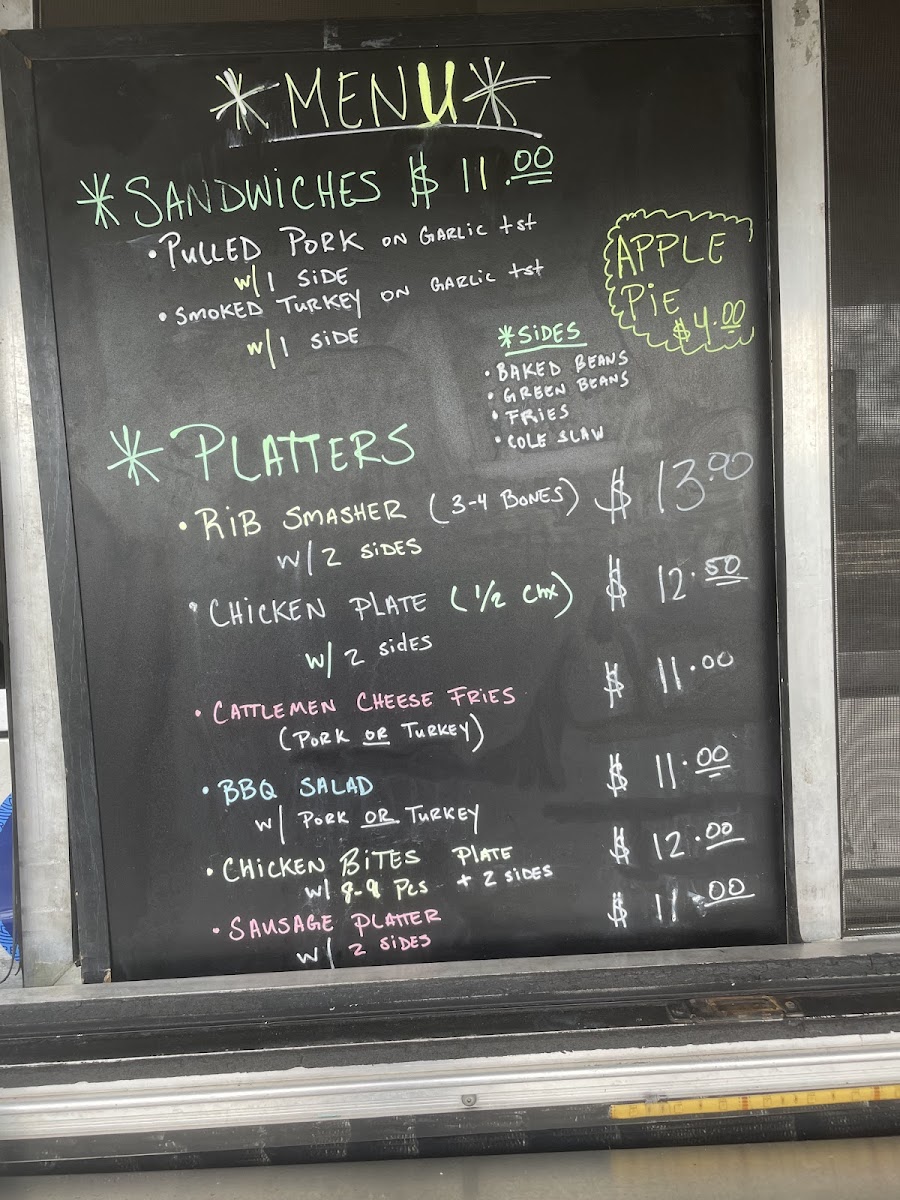 *MENU*
*SANDWICHES $ 11.00
• PULLED PORK ON GARLIC tst
w/1 SIDE
• SMOKED TURKEY ON GARLIC tst
w/1 SIDE
APPLE
PIE
$4.00
*SIDES
• BAKED BEANS
• GREEN BEANS
• FRIES
• COLE SLAW
*PLATTERS
• RIB SMASHER (3-4 BONES) $ 13.00
w/2 SIDES
• CHICKEN PLATE (1/2 CHX) $ 12.50
w/ 2 sides
• CATTLEMEN CHEESE FRIES $ 11.00
(PORK OR TURKEY)
• BBQ SALAD $ 11.00
w/ PORK OR TURKEY
• CHICKEN BITES PLATE $ 12.00
w/ 8-9 Pcs + 2 SIDES
• SAUSAGE PLATTER $ 11.00
w/ 2 SIDES